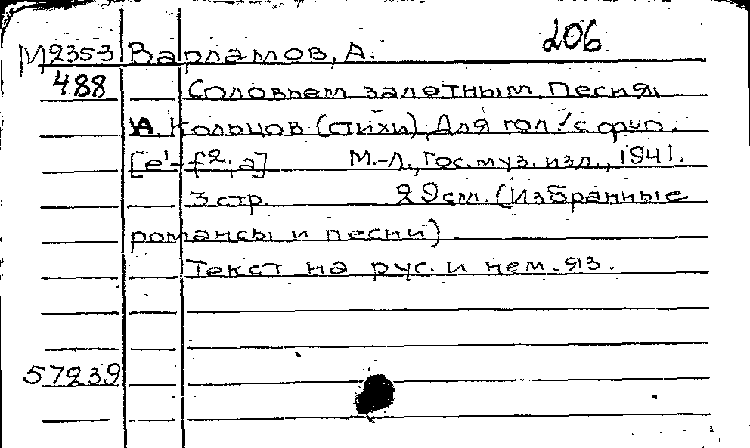 206
М2353 Варламов, А.
488 Соловьем залетным. Песня.
А. Кольцов (стихи). Для гол. с фип.
[e¹-f²; a] М.-Л., Гос. муз. изл., 1941.
3 стр. 29 см. (Избранные
романсы и песни)
Текст на рус. и нем. яз.
57239